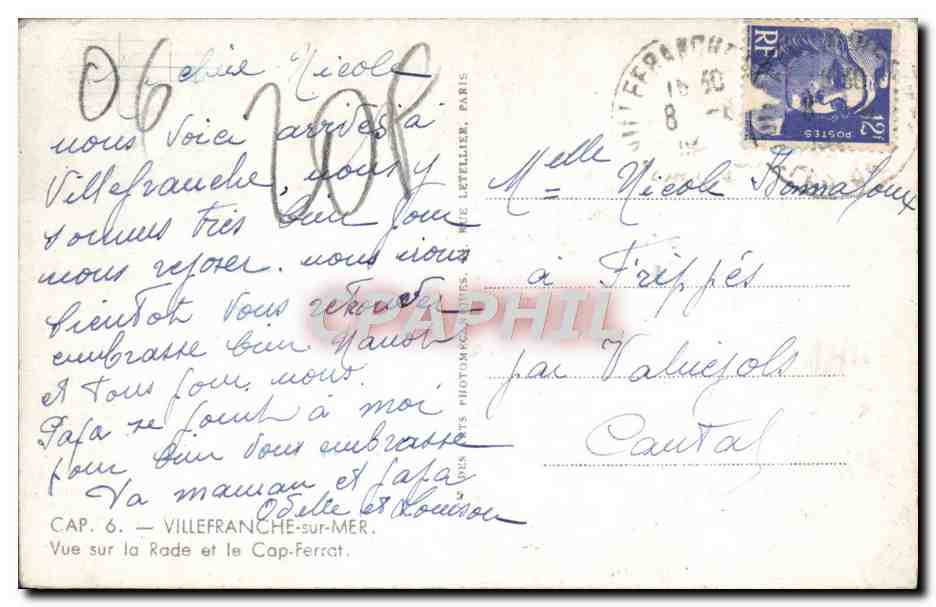 06
20F
chère Nicole
nous voici arrivés à
Villefranche, nous y
sommes très bien pour
nous reposer. nous irons
bientôt vous retrouver
embrasse bien Nanou
et tous pour nous.
Papa se joint à moi
pour bien vous embrasser
Ta maman et papa
Odette et Louison
CAP. 6. — VILLEFRANCHE-sur-MER.
Vue sur la Rade et le Cap-Ferrat.
DES ARTS PHOTOMÉCANIQUES, RUE LETELLIER, PARIS
VILLEFRANCHE
RF
POSTES
12F
Melle Nicole Bonnafoux
à Frippés
par Valuejols
Cantal
CPAPHIL